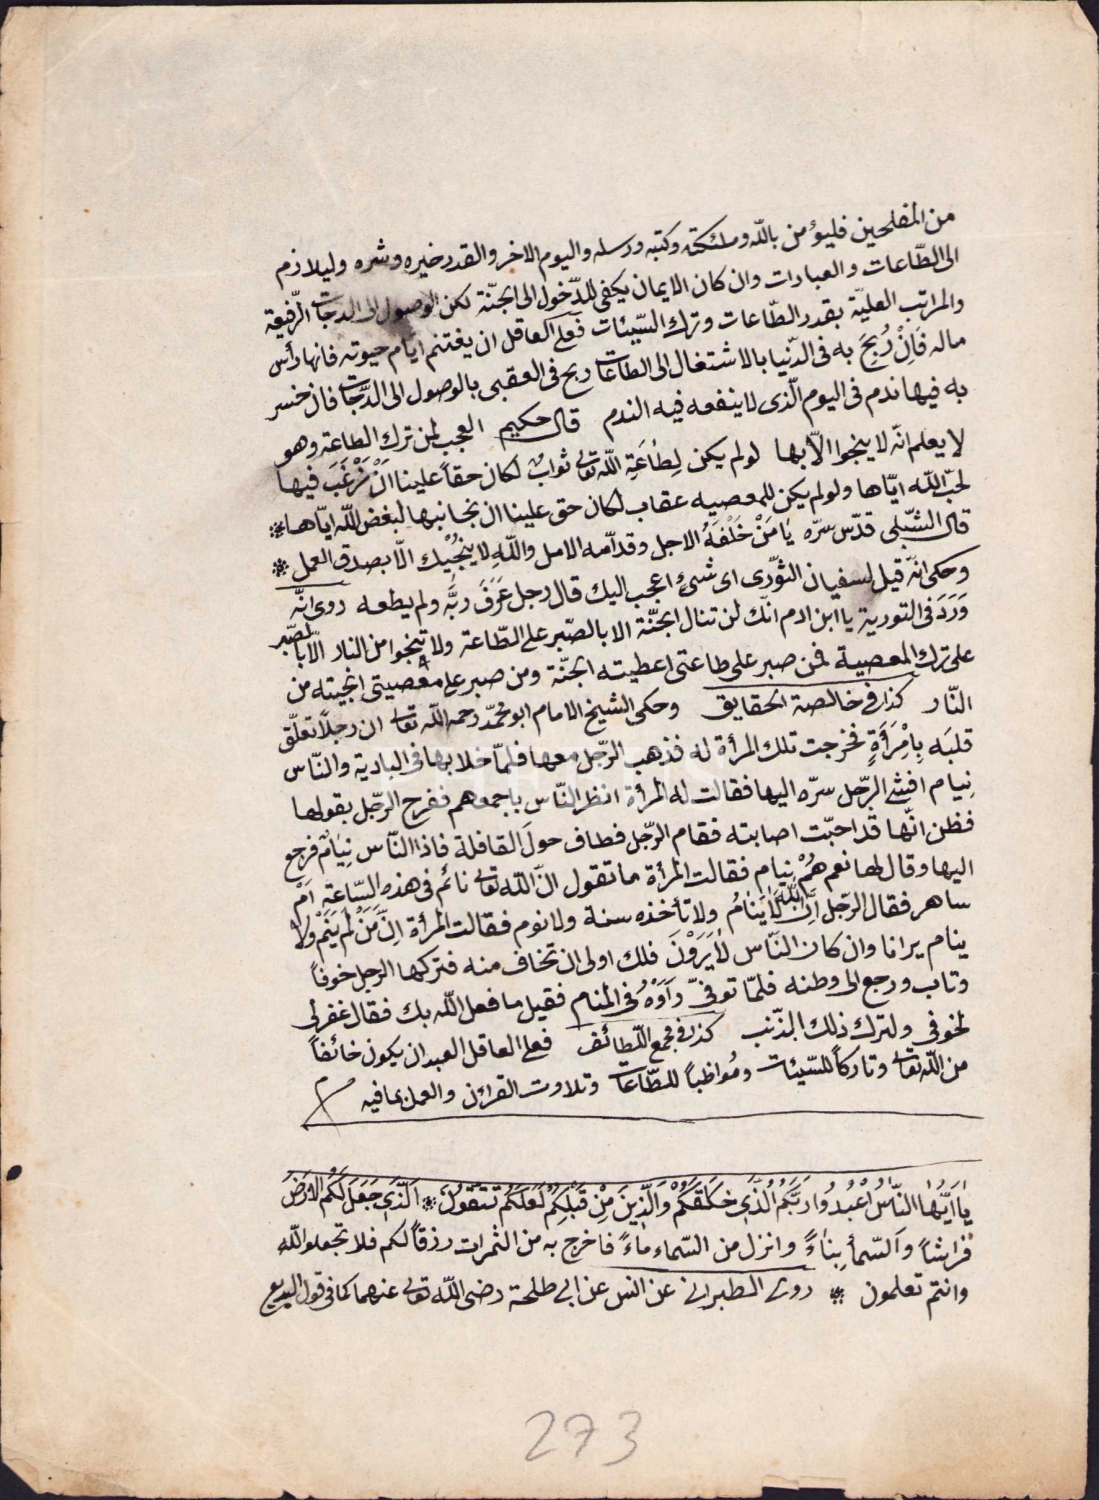 من المفلحين فليؤمن بالله وملئكته وكتبه ورسله واليوم الاخر والقدر خيره وشره وليلازم
الى الطّاعات والعبادات وان كان الايمان يكفى للدّخول الى الجنّة لكن الوصول الى الدرجات الرّفيعة
والمراتب العليّة بقدر الطّاعات وترك السّيئات فعلى العاقل ان يغتنم ايّام حيوته فانها رأس
ماله فَاِنْ رُبِحَ به فى الدّنيا بالاشتغال الى الطاعات ربح فى العقبى بالوصول الى الدّرجات فان خسر
به فيها ندم فى اليوم الّذى لا ينفعه فيه الندم قال حكيم العجب لمن ترك الطاعة وهو
لا يعلم انّه لا ينجوا الاّ بها لو لم يكن لِطَاعَةِ اللّه تعالى ثوابٌ لكان حقاً علينا اَنْ نَرْغَبَ فيها
لحبّ اللّه ايّاها ولو لم يكن للمعصيه عقاب لكان حق علينا ان نجانبها لبغض اللّه ايّاها
قال الشّبلى قدّس سرّه يَا مَنْ خَلْفَهُ الاجل وقدّامه الامل واللّهِ لا ينجُيك الّا بصدق العمل
وحكى انّه قيل لسفيان الثّورى اى شئٍ اعجب اليك قال رجل عَرَفَ ربَّه ولم يطعه روى انّه
وَرَدَ فى التورية يا ابن ادم انّك لن تنال الجنّة الا بالصّبر على الطّاعة ولا تنجوا من النار الّا بالصّبر
على ترك المعصية فمن صبر على طاعتى اعطيته الجنّة ومن صبر على معصيتى انجيته من
النّار كذا فى خالصة الحقايق وحكى الشيخ الامام ابو محمّد رحمه اللّه تعالى ان رجلاً تعلّق
قلبَه بِاِمْرَأَةٍ فخرجت تلك المرأة له فذهب الرّجل معها فلمّا خلا بها فى البادية والنّاس
نِيام افشى الرّجل سرّه اليها فقالت له المرأة انظر النّاس باجمعهم ففرح الرّجل بقولها
فظن انّها قد احبّت اصابته فقام الرّجل فطاف حولَ القافلة فاذا النّاس نِيَامٌ فرجع
اليها وقال لها نعم هُمْ نِيام فقالت المرأة ما تقول انّ اللّه تعالى نائم فى هذه السّاعة اَمْ
ساهر فقال الرّجل اِنَّ اللّٰه لَا يَنَامُ ولا تأخذه سنة ولا نوم فقالت المرأة اِنّ مَنْ لَمْ يَنَمْ ولا
ينام يرانا وان كان النّاس لَا يَرَوْنَ فلك اولى ان تخاف منه فتركها الرجل خوفاً
وتاب ورجع الى وطنه فلمّا توفىّ رَأَوْهُ فى المنام فقيل ما فعل اللّه بك فقال غفر لى
لخوفى ولترك ذلك الذّنب كذا فى مجمع اللّطائف فعلى العاقل العبد ان يكون خائفاً
من اللّه تعالى وتاركاً للسّيئات ومُواظباً للطّاعات وتلاوت القرائن والعمل بما فيه
يَا اَيُّهَا النَّاسُ اعْبُدُوا رَبَّكُمُ الَّذِى خَلَقَكُمْ وَالَّذِينَ مِنْ قَبْلِكُمْ لَعَلَّكُمْ تَتَّقُونَ اَلَّذِى جَعَلَ لَكُمُ الْاَرْضَ
فِرَاشاً وَالسَّمَاءَ بِنَاءً وانزل من السّماء مَاءً فاخرج به من الثمرات رزقاً لكم فلا تجعلوا للّه
وانتم تعلمون روى الطبرانى عن انس عن ابى طلحة رضى اللّه تعالى عنهما كما فى قول البديع
273